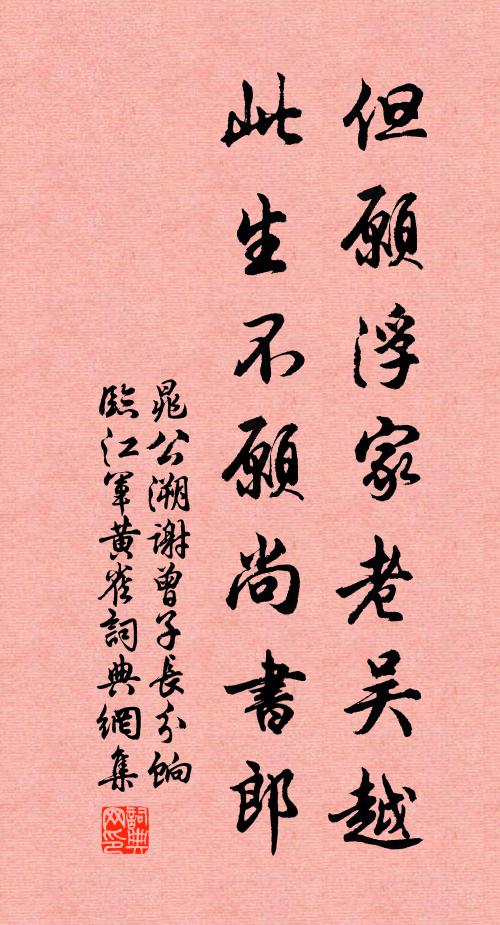 但願浮家老吴越
此生不願尚書郎
晁公溯謝曾子長分餉
臨江軍黄雀詞典網集
詞典
网印